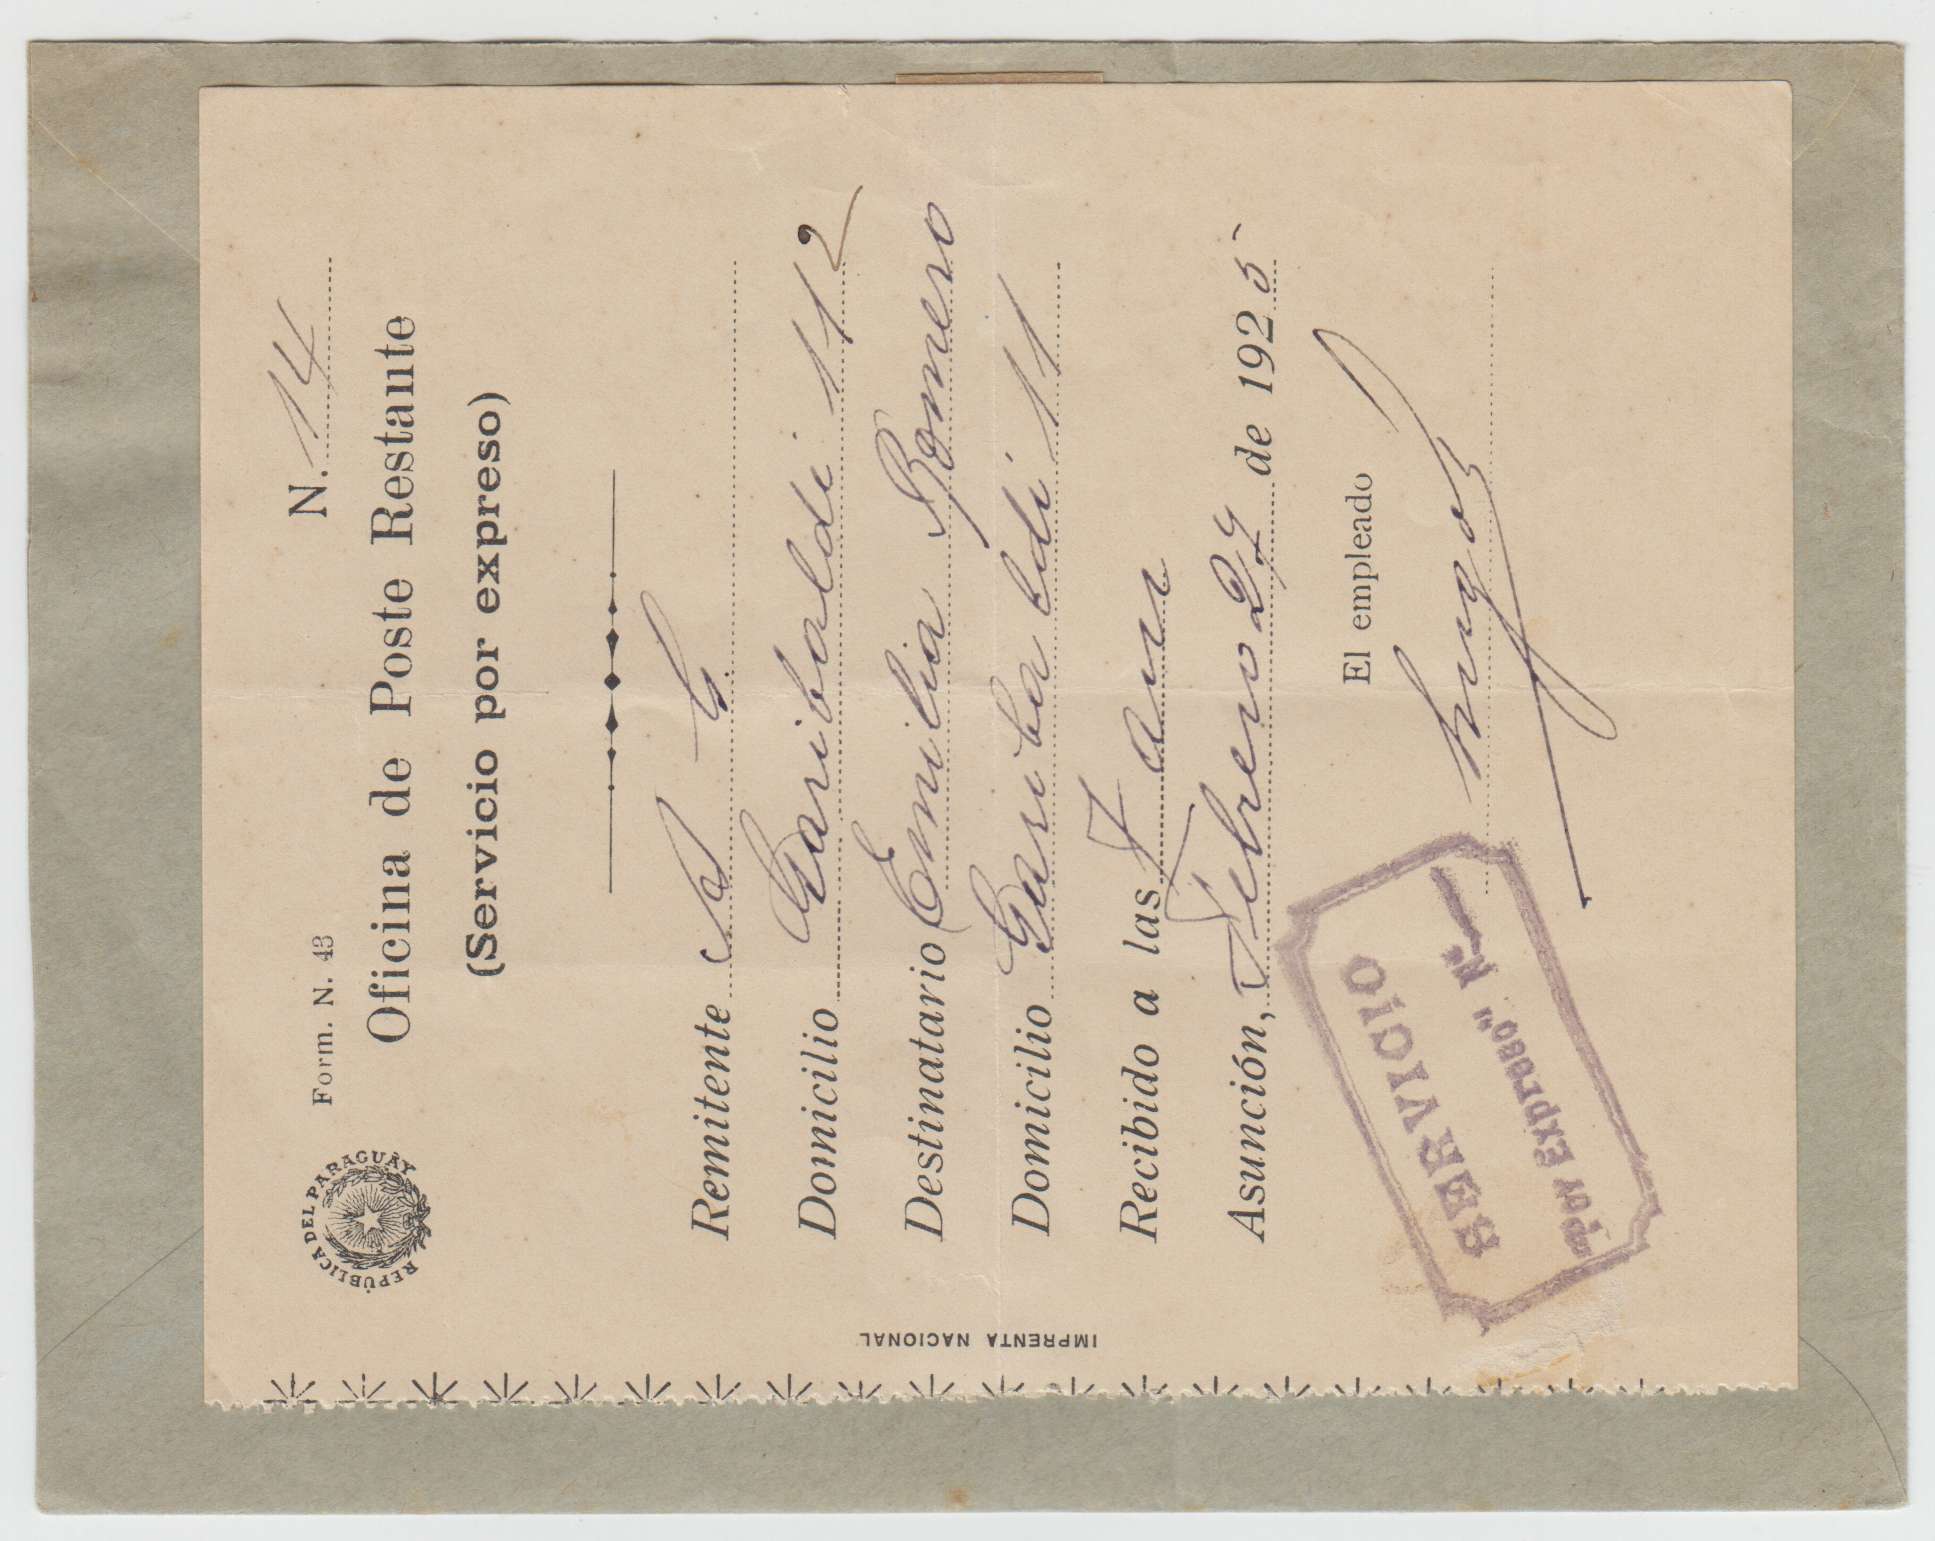 REPÚBLICA DEL PARAGUAY
Form. N. 43 N. 14
Oficina de Poste Restante
(Servicio por expreso)
Remitente
Domicilio Garibaldi 112
Destinatario Emilia Romero
Domicilio Garibaldi 11
Recibido a las 7 am
Asunción, Febrero 27 de 1925
El empleado
SERVICIO
"Por Expreso" Nº
IMPRENTA NACIONAL